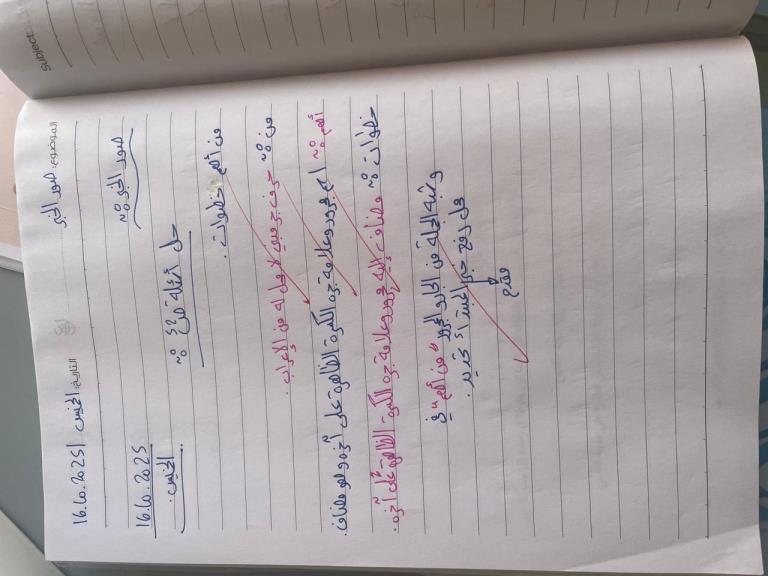 Subject:
الموضوع: صور الخبر التاريخ: الخميس 16.10.2025
صور الخبر:
16.10.2025
الخميس.
حل أسئلة ص٤٤:
من أهم خطوات.
من: حرف جر مبني لا محل له من الإعراب.
أهم: اسم مجرور وعلامة جره الكسرة الظاهرة على آخره وهو مضاف.
خطوات: مضاف إليه مجرور وعلامة جره الكسرة الظاهرة على آخره.
وشبه الجملة من الجار والمجرور "من أهم" في
محل رفع خبر المبتدأ